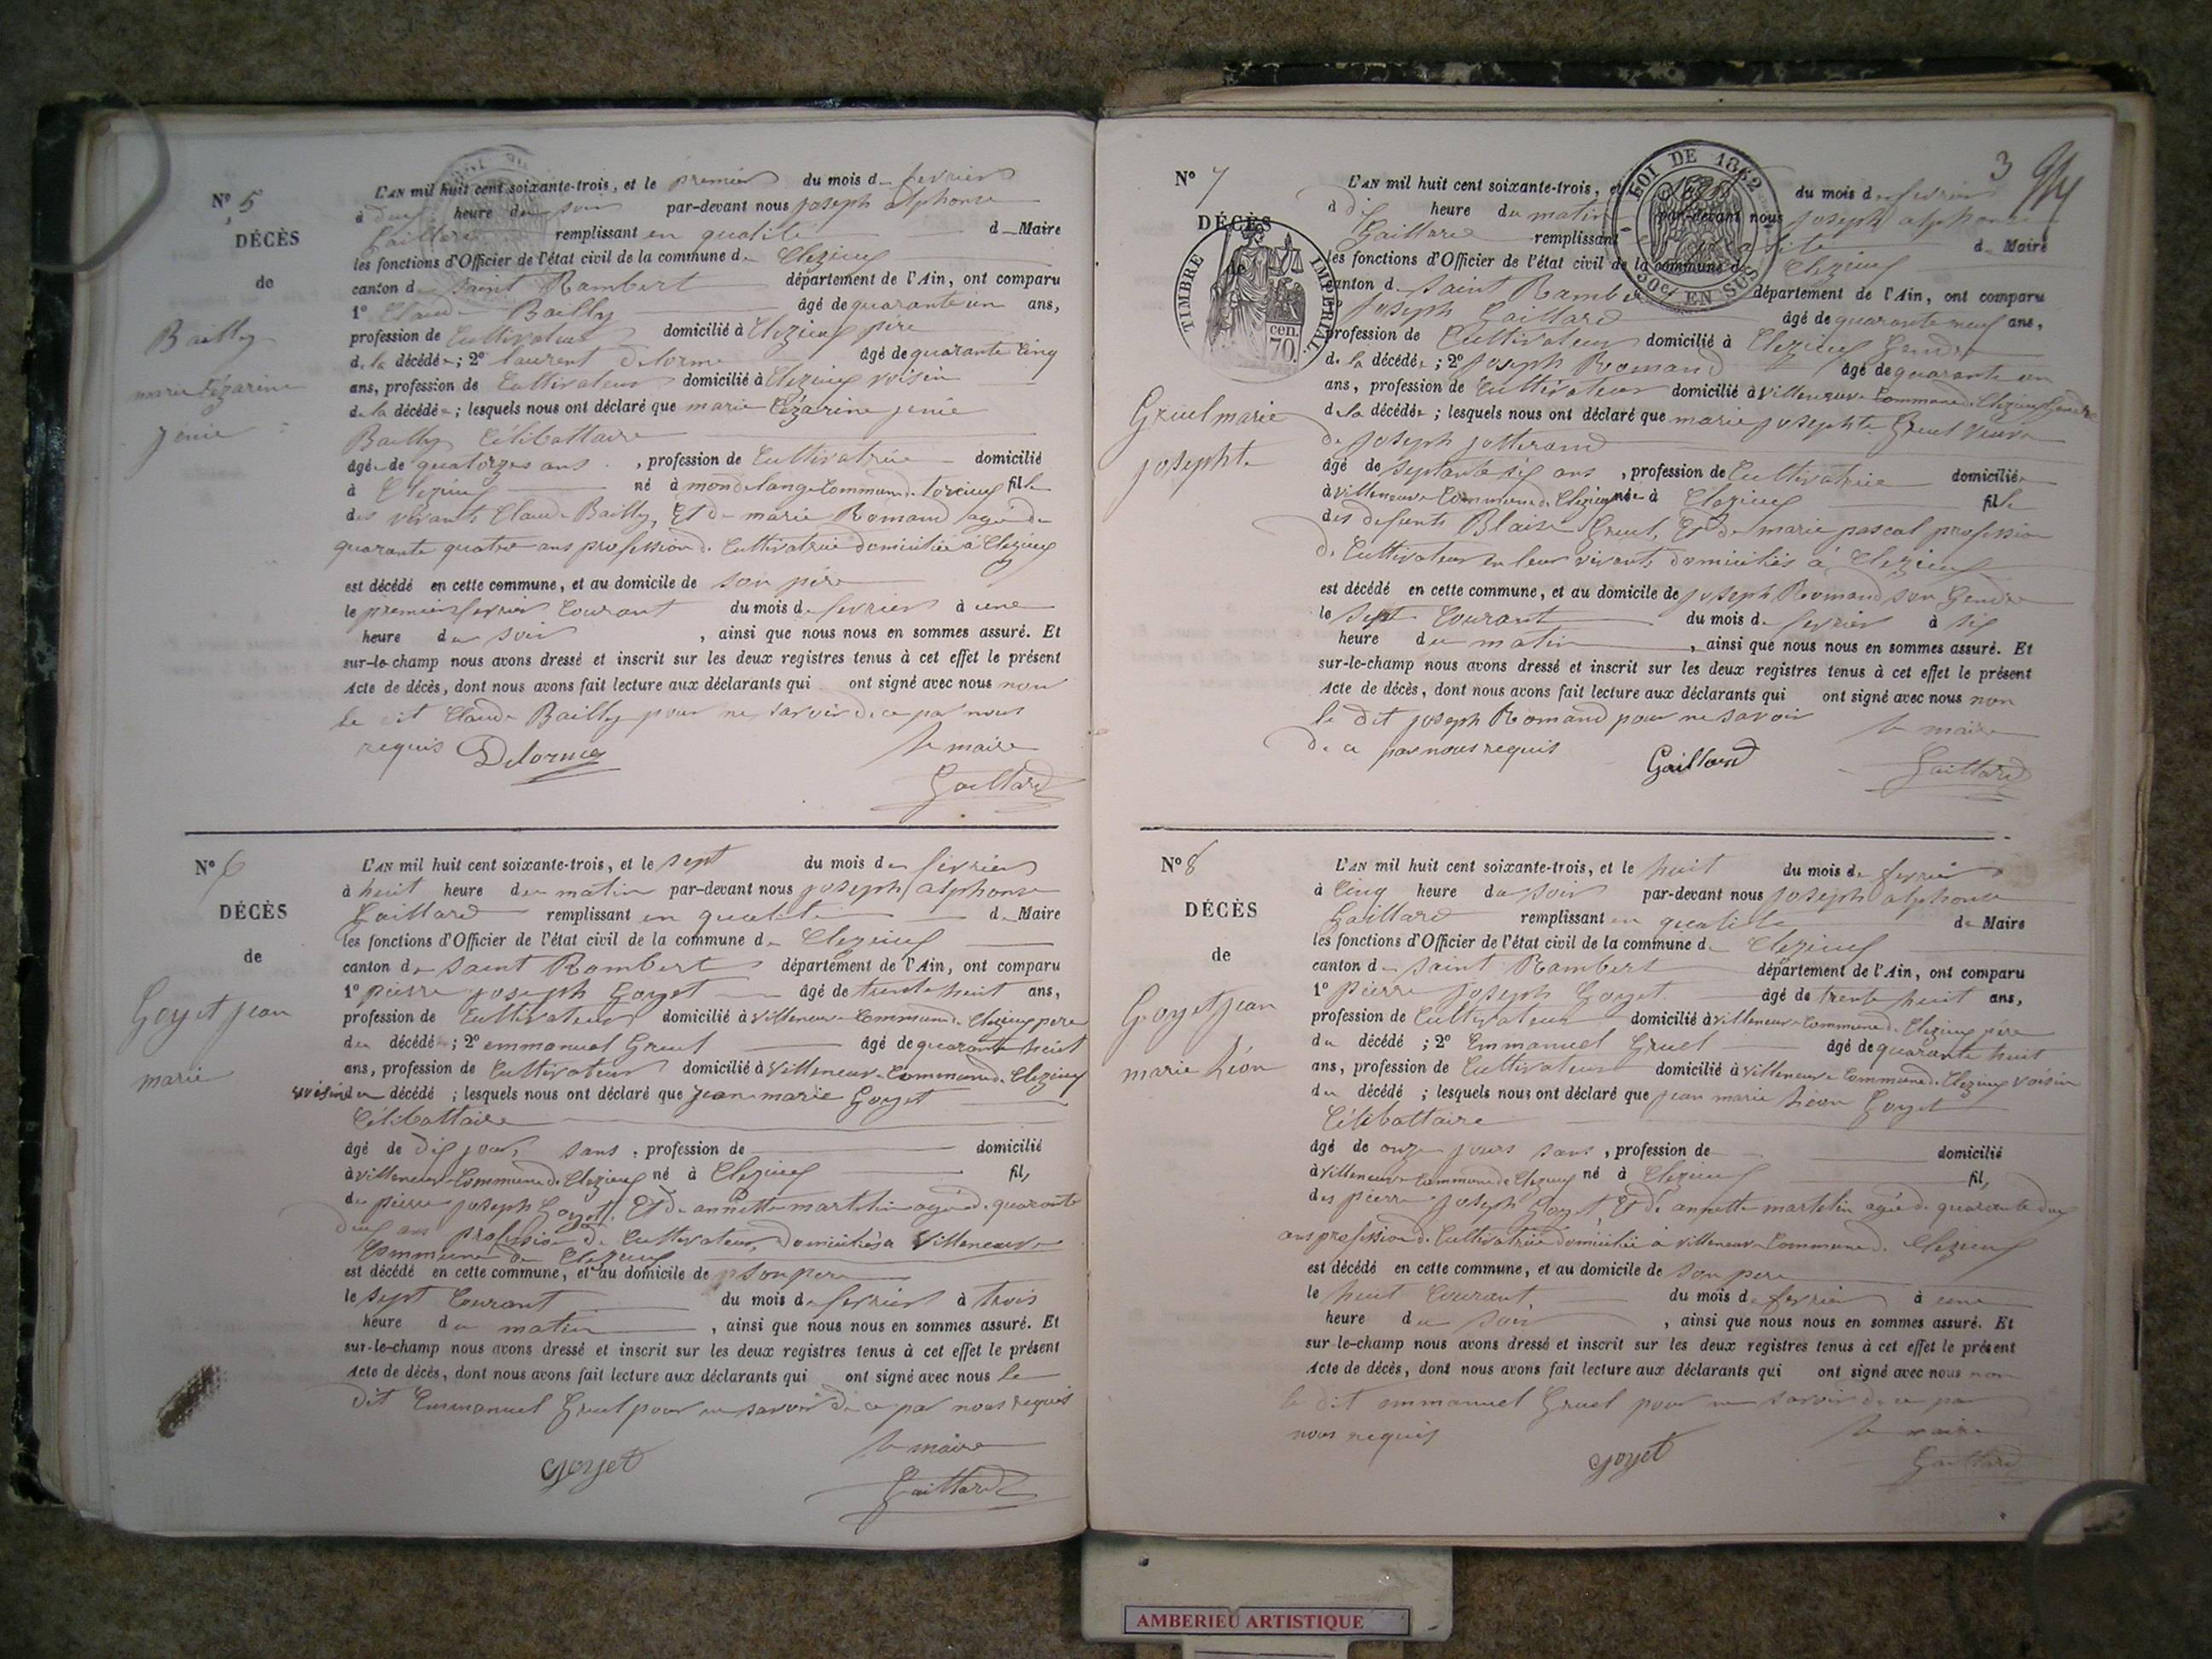 N° 5
DÉCÈS
de
Bailly
marie Cézarine
jenie
L'AN mil huit cent soixante-trois, et le premier du mois de fevrier
à deux heure du soir par-devant nous joseph alphonse
Gaillard remplissant en qualite de Maire
les fonctions d'Officier de l'état civil de la commune de Clezieu
canton de saint Rambert département de l'Ain, ont comparu
1° Claude Bailly âgé de quarante un ans,
profession de Cultivateur domicilié à Clezieu pere
de la décédée; 2° laurent delorme âgé de quarante Cinq
ans, profession de Cultivateur domicilié à Clezieu voisin
de la décédée; lesquels nous ont déclaré que marie Cézarine jenie
Bailly Célibattaire
âgée de quatorzes ans, profession de Cultivatrice domicilié
à Clezieu né à mondelange Commune de torcieu fille
des vivants Claude Bailly, Et de marie Romand agée de
quarante quatre ans profession de Cultivatrice domiciliée à Clezieu
est décédé en cette commune, et au domicile de son père
le premier fevrier Courant du mois de fevrier à une
heure du soir, ainsi que nous nous en sommes assuré. Et
sur-le-champ nous avons dressé et inscrit sur les deux registres tenus à cet effet le présent
Acte de décès, dont nous avons fait lecture aux déclarants qui ont signé avec nous non
le dit Claude Bailly pour ne savoir de ce par nous
requis Delorme le maire
Gaillard
N° 6
DÉCÈS
de
Goyet jean
marie
L'AN mil huit cent soixante-trois, et le sept du mois de fevrier
à huit heure du matin par-devant nous joseph alphonse
Gaillard remplissant en qualite de Maire
les fonctions d'Officier de l'état civil de la commune de Clezieu
canton de saint Rambert département de l'Ain, ont comparu
1° pierre joseph Goyet âgé de trente huit ans,
profession de Cultivateur domicilié à villeneuve Commune de Clezieu pere
du décédé; 2° emmanuel Gruel âgé de quarante huit
ans, profession de Cultivateur domicilié à villeneuve Commune de Clezieu
voisin du décédé; lesquels nous ont déclaré que jean marie Goyet
Célibattaire
âgé de dix jours sans, profession de domicilié
à villeneuve Commune de Clezieu né à Clezieu fils
de pierre joseph Goyet, Et de annette martelin agée de quarante
deux ans profession de Cultivateur, domiciliés à villeneuve
Commune de Clezieu
est décédé en cette commune, et au domicile de son pere
le sept Courant du mois de fevrier à trois
heure du matin, ainsi que nous nous en sommes assuré. Et
sur-le-champ nous avons dressé et inscrit sur les deux registres tenus à cet effet le présent
Acte de décès, dont nous avons fait lecture aux déclarants qui ont signé avec nous le
dit Emmanuel Gruel pour ne savoir de ce par nous requis
le maire
goyet Gaillard
3
N° 7
DÉCÈS
de
Gruel marie
josephte
TIMBRE IMPERIAL
cen. 70.
LOI DE 1862
50c. EN SUS
L'AN mil huit cent soixante-trois, et du mois de fevrier
à dix heure du matin par-devant nous joseph alphonse
Gaillard remplissant en qualite de Maire
les fonctions d'Officier de l'état civil de la commune de Clezieu
canton de saint Rambert département de l'Ain, ont comparu
joseph Gaillard âgé de quarante neuf ans,
profession de Cultivateur domicilié à Clezieu Gendre
de la décédée; 2° joseph Romand âgé de quarante un
ans, profession de Cultivateur domicilié à villeneuve Commune de Clezieu Gendre
de la décédée; lesquels nous ont déclaré que marie josephte Gruel veuve
de joseph
âgé de septante six ans, profession de Cultivatrice domiciliée
à villeneuve Commune de Clezieu née à Clezieu fille
des defunts Blaise Gruel, Et de marie pascal profession
de Cultivateur en leur vivants domiciliés à Clezieu
est décédé en cette commune, et au domicile de joseph Romand son Gendre
le sept Courant du mois de fevrier à six
heure du matin, ainsi que nous nous en sommes assuré. Et
sur-le-champ nous avons dressé et inscrit sur les deux registres tenus à cet effet le présent
Acte de décès, dont nous avons fait lecture aux déclarants qui ont signé avec nous non
le dit joseph Romand pour ne savoir
de ce par nous requis le maire
Gaillard Gaillard
N° 8
DÉCÈS
de
Goyet jean
marie Léon
L'AN mil huit cent soixante-trois, et le huit du mois de fevrier
à Cinq heure du soir par-devant nous joseph alphonse
Gaillard remplissant en qualite de Maire
les fonctions d'Officier de l'état civil de la commune de Clezieu
canton de saint Rambert département de l'Ain, ont comparu
1° pierre joseph Goyet âgé de trente huit ans,
profession de Cultivateur domicilié à villeneuve Commune de Clezieu père
du décédé; 2° Emmanuel Gruel âgé de quarante huit
ans, profession de Cultivateur domicilié à villeneuve Commune de Clezieu voisin
du décédé; lesquels nous ont déclaré que jean marie Léon Goyet
Célibattaire
âgé de onze jours sans, profession de domicilié
à villeneuve Commune de Clezieu né à Clezieu fils
des pierre joseph Goyet, Et de annette martelin agée de quarante deux
ans profession de Cultivatrice domiciliée à villeneuve Commune de Clezieu
est décédé en cette commune, et au domicile de son pere
le huit Courant du mois de fevrier à une
heure du soir, ainsi que nous nous en sommes assuré. Et
sur-le-champ nous avons dressé et inscrit sur les deux registres tenus à cet effet le présent
Acte de décès, dont nous avons fait lecture aux déclarants qui ont signé avec nous non
le dit emmanuel Gruel pour ne savoir de ce par
nous requis le maire
goyet Gaillard
AMBERIEU ARTISTIQUE